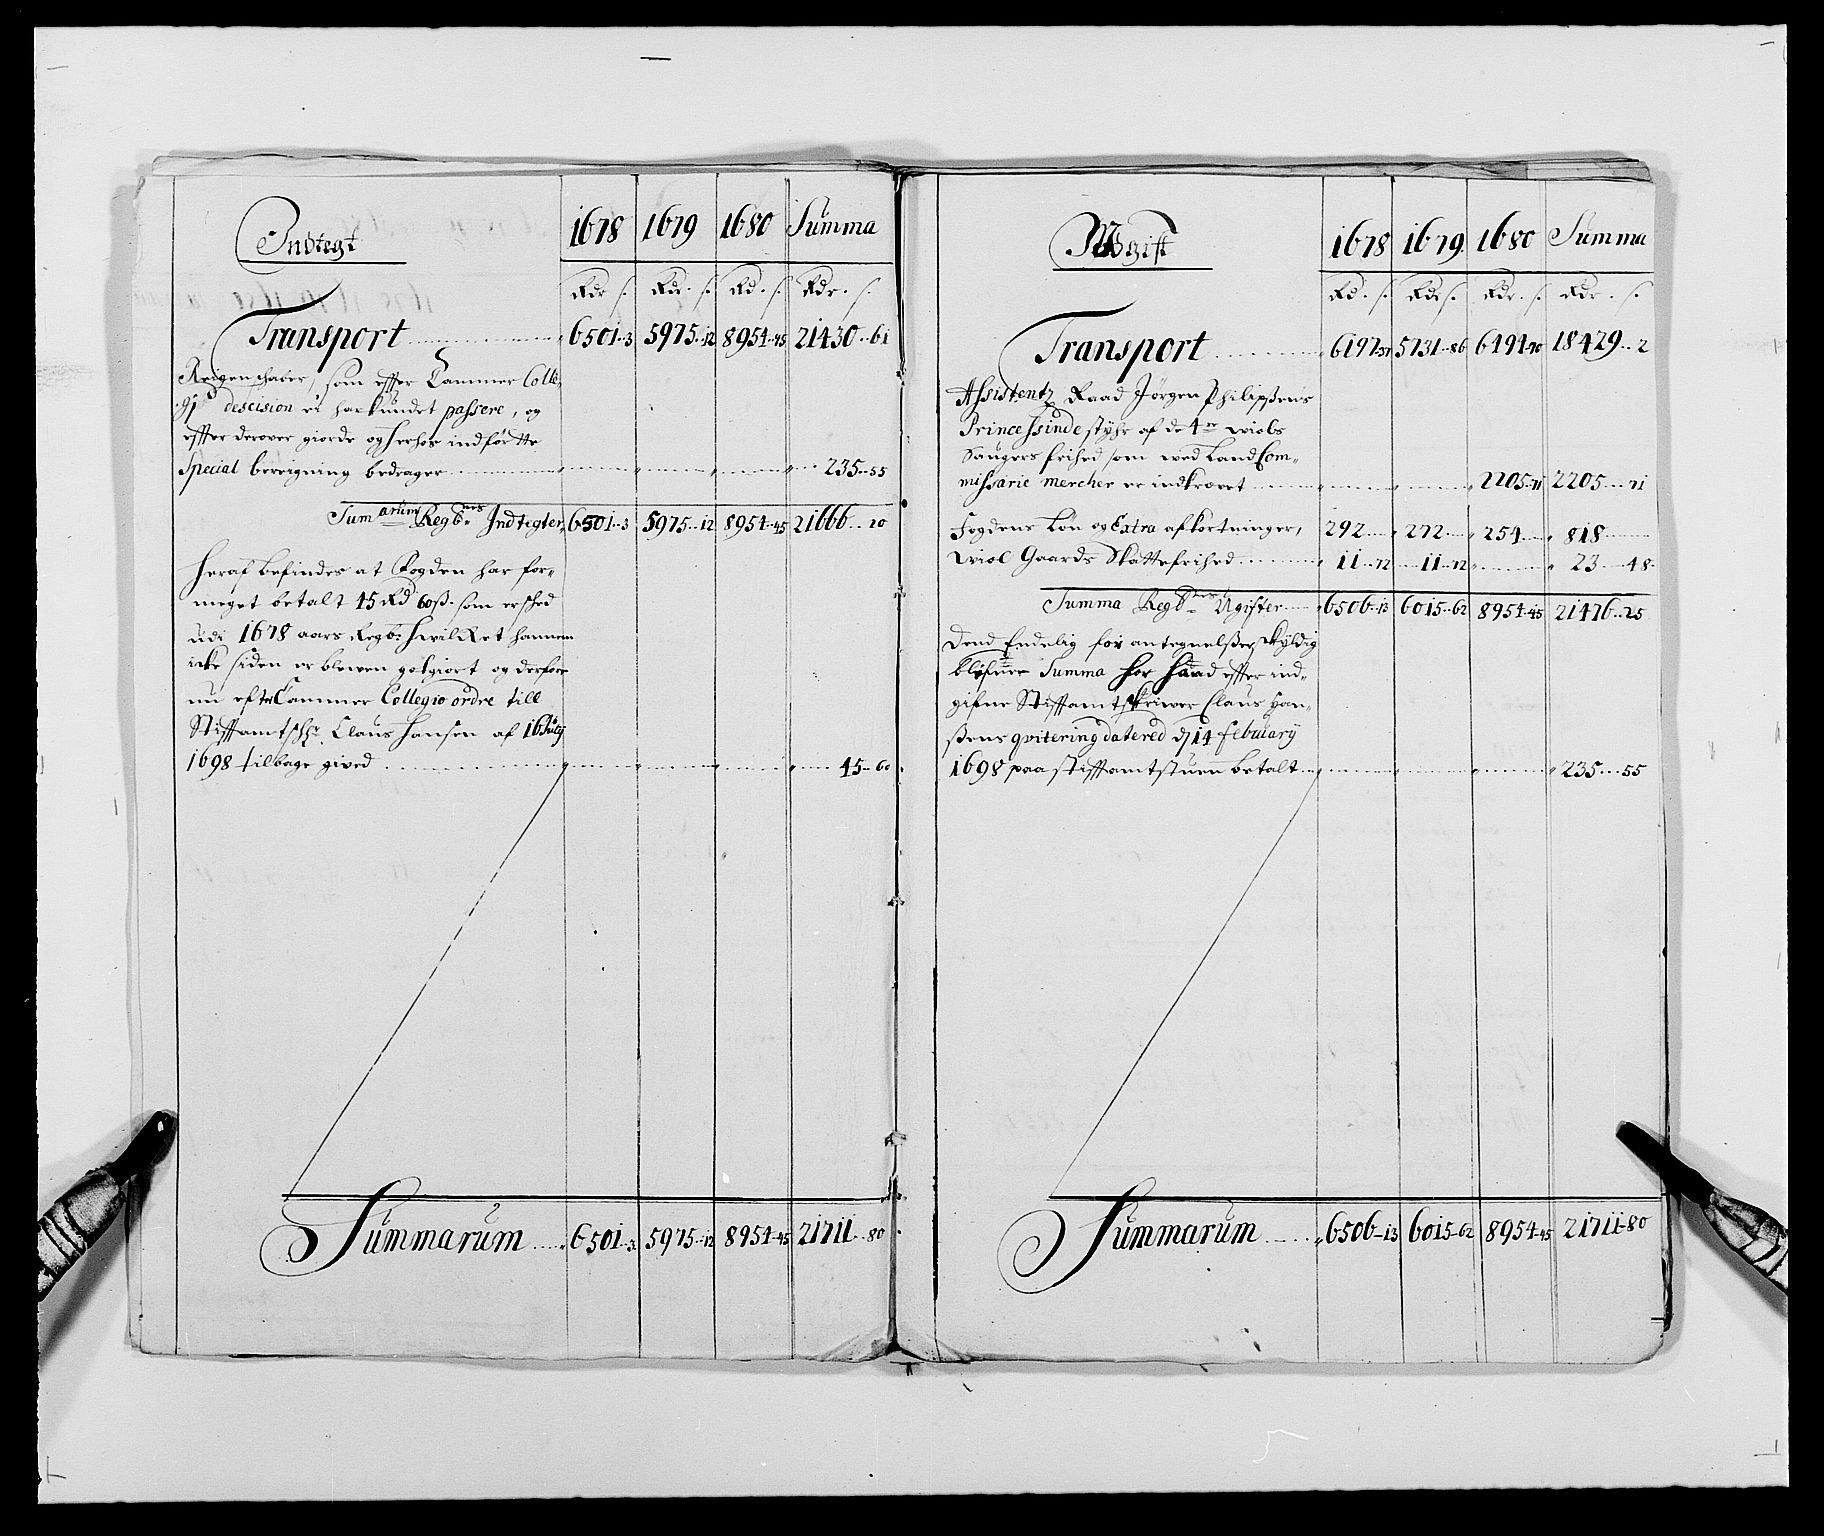 Indtegt 1678 1679 1680 Summa
Rdr ſ. Rdr. ſ. Rd. ſ. Rdr. ſ.
Transport 6501..3 5975..12 8954..45 21430..61
Reigenschaber, som effter Cammer Colle-
gij descision ei har kundet passere, og
effter derover giorde og herhos indførtte
Special bereigning bedrager 235..55
Summarum Regb.ns Indtegter 6501..3 5975..12 8954..45 21666..20
Heraf befindes at Fogden har for-
meget betalt 45 Rd 60ß. som er sched
udi 1678 aars Regb: hvilket hannem
icke siden er blewen gotgiort og derfore
nu efter Cammer Collegio ordre till
Stiffamtschr. Claus Hansen af 16 July
1698 tilbage gived 45..60
Summarum 6501..3 5975..12 8954..45 21711..80
Udgift 1678 1679. 1680 Summa
Rd. ſ. Rdr ſ. Rdr. ſ. Rdr. ſ.
Transport 6197..37 5731..86 6494..70 18429..2
Assistentz Raad Jørgen Philipßens
Princessinde styhr af de 4re wiobs
Saugers frihed som wed Land Com-
missarie mercher er indkrævet 2205..71 2205..71
Fogdens Løn og Extra afkortninger, 292 272 254 818
wiol Gaards Skattefrihed 11..72 11..72 23..48.
Summa Regb.ns Ugifter 6506..13 6015..62 8954..45 21476..25
Dend Endelig for antegnelßer skyldig
blefne Summa har hand effter ind-
gifne Stiffamtskriwer Claus Han-
ßens qvitering datered d 14 february
1698 paa stiffamtstuen betalt 235..55
Summarum 6506..13 6015..62 8954..45 21711..80